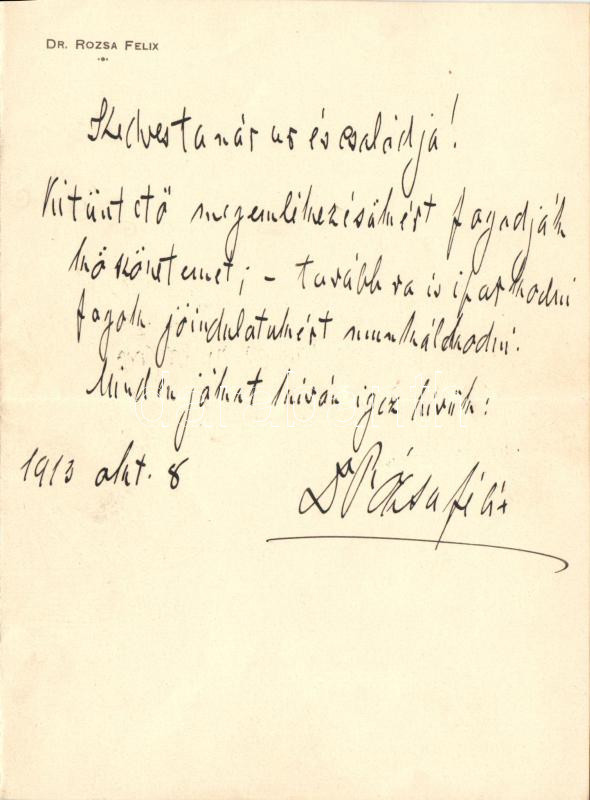 DR. ROZSA FELIX
Kedves tanár ur és családja!
Kitüntető megemlékezésükért fogadják
köszönetemet; – továbbra is iparkodni
fogok jóindulatukért munkálkodni.
Minden jókat kíván igaz hívük:
1913 okt. 8
Dr Rózsa Félix